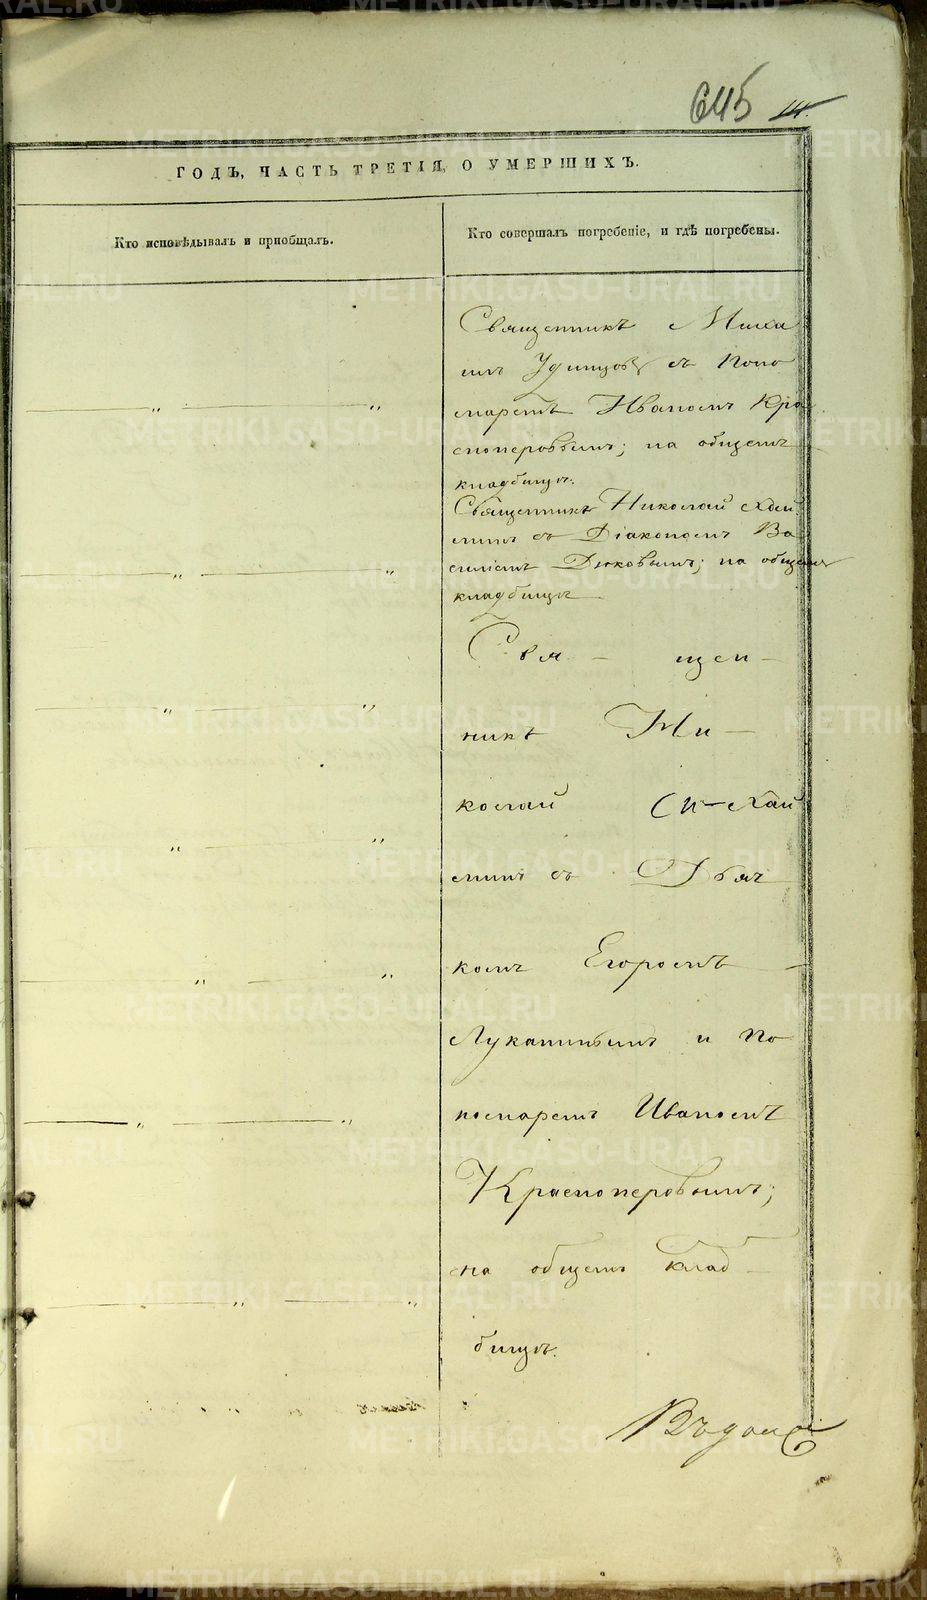 645
ГОДЪ, ЧАСТЬ ТРЕТІЯ, О УМЕРШИХЪ.
Кто исповѣдывалъ и приобщалъ.
Кто совершалъ погребеніе, и гдѣ погребены.
Священникъ Миха
илъ Удинцовъ съ Поно
маремъ Иваномъ Кра
сноперовымъ; на общемъ
кладбищѣ.
Священникъ Николай
съ Діакономъ Ва
силіемъ Дюковымъ; на общемъ
кладбищѣ
Свя - щен -
никъ Ни -
колай
съ Дьяч
комъ Егоромъ -
Луканинымъ и По
номаремъ Иваномъ
Красноперовымъ;
на общемъ клад -
бищѣ.
METRIKI.GASO-URAL.RU